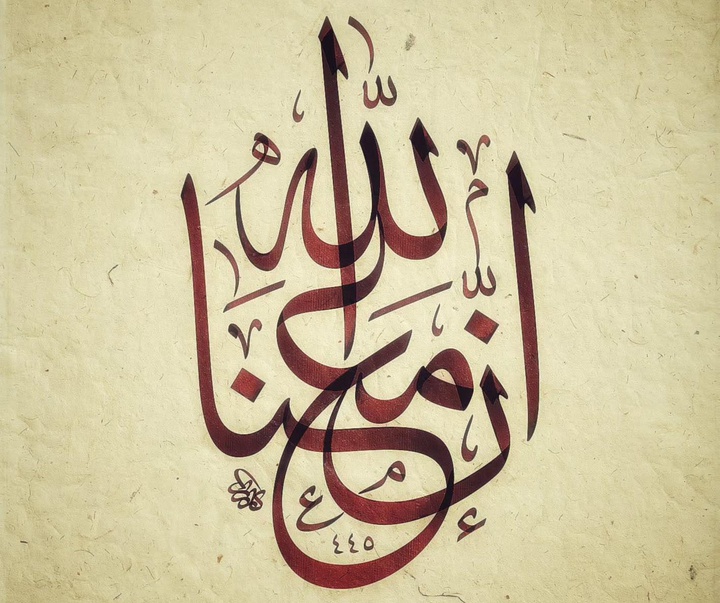 إِنَّ اللّٰهَ مَعَنَا
٤٤٥